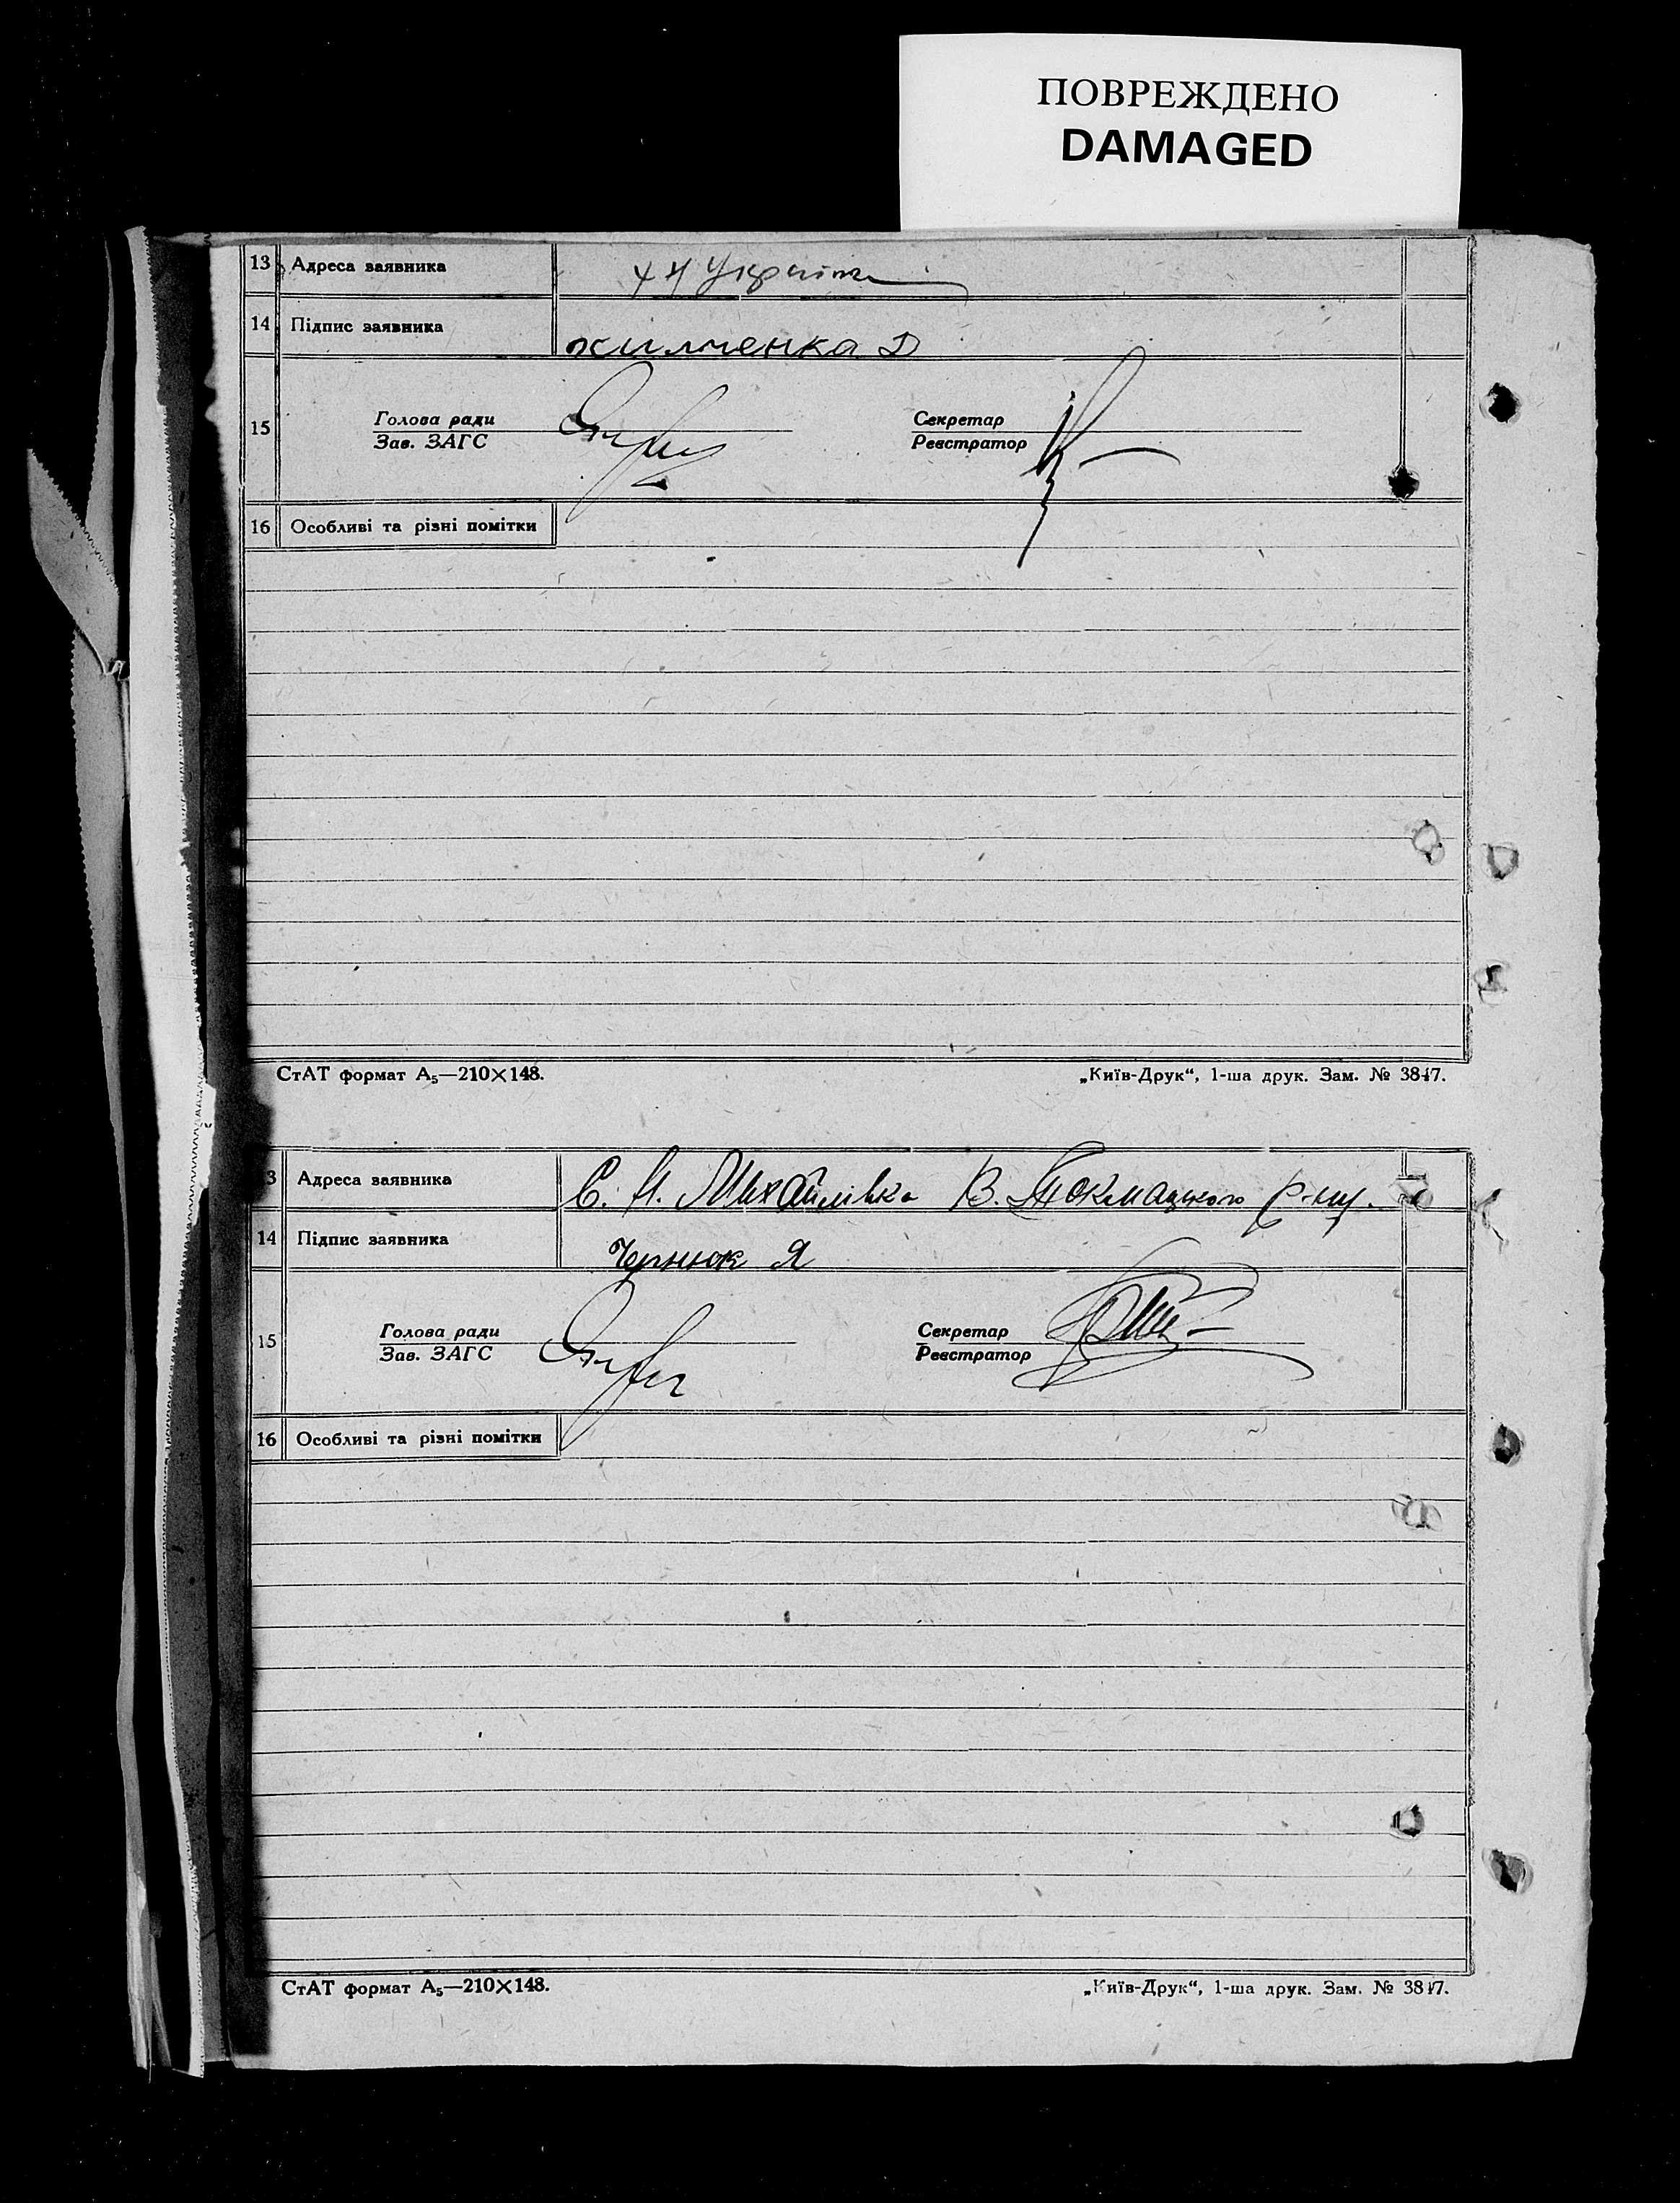 ПОВРЕЖДЕНО
DAMAGED
13 Адреса заявника
14 Підпис заявника Жилченка Д
15 Голова ради Секретар
Зав. ЗАГС Реєстратор
16 Особливі та різні помітки
СтАТ формат А₅—210×148. „Київ-Друк“, 1-ша друк. Зам. № 3847.
3 Адреса заявника С. Н. Михайлівка В. Токмацького р-ну.
14 Підпис заявника Чернюк Я
15 Голова ради Секретар
Зав. ЗАГС Реєстратор
16 Особливі та різні помітки
СтАТ формат А₅—210×148. „Київ-Друк“, 1-ша друк. Зам. № 3847.